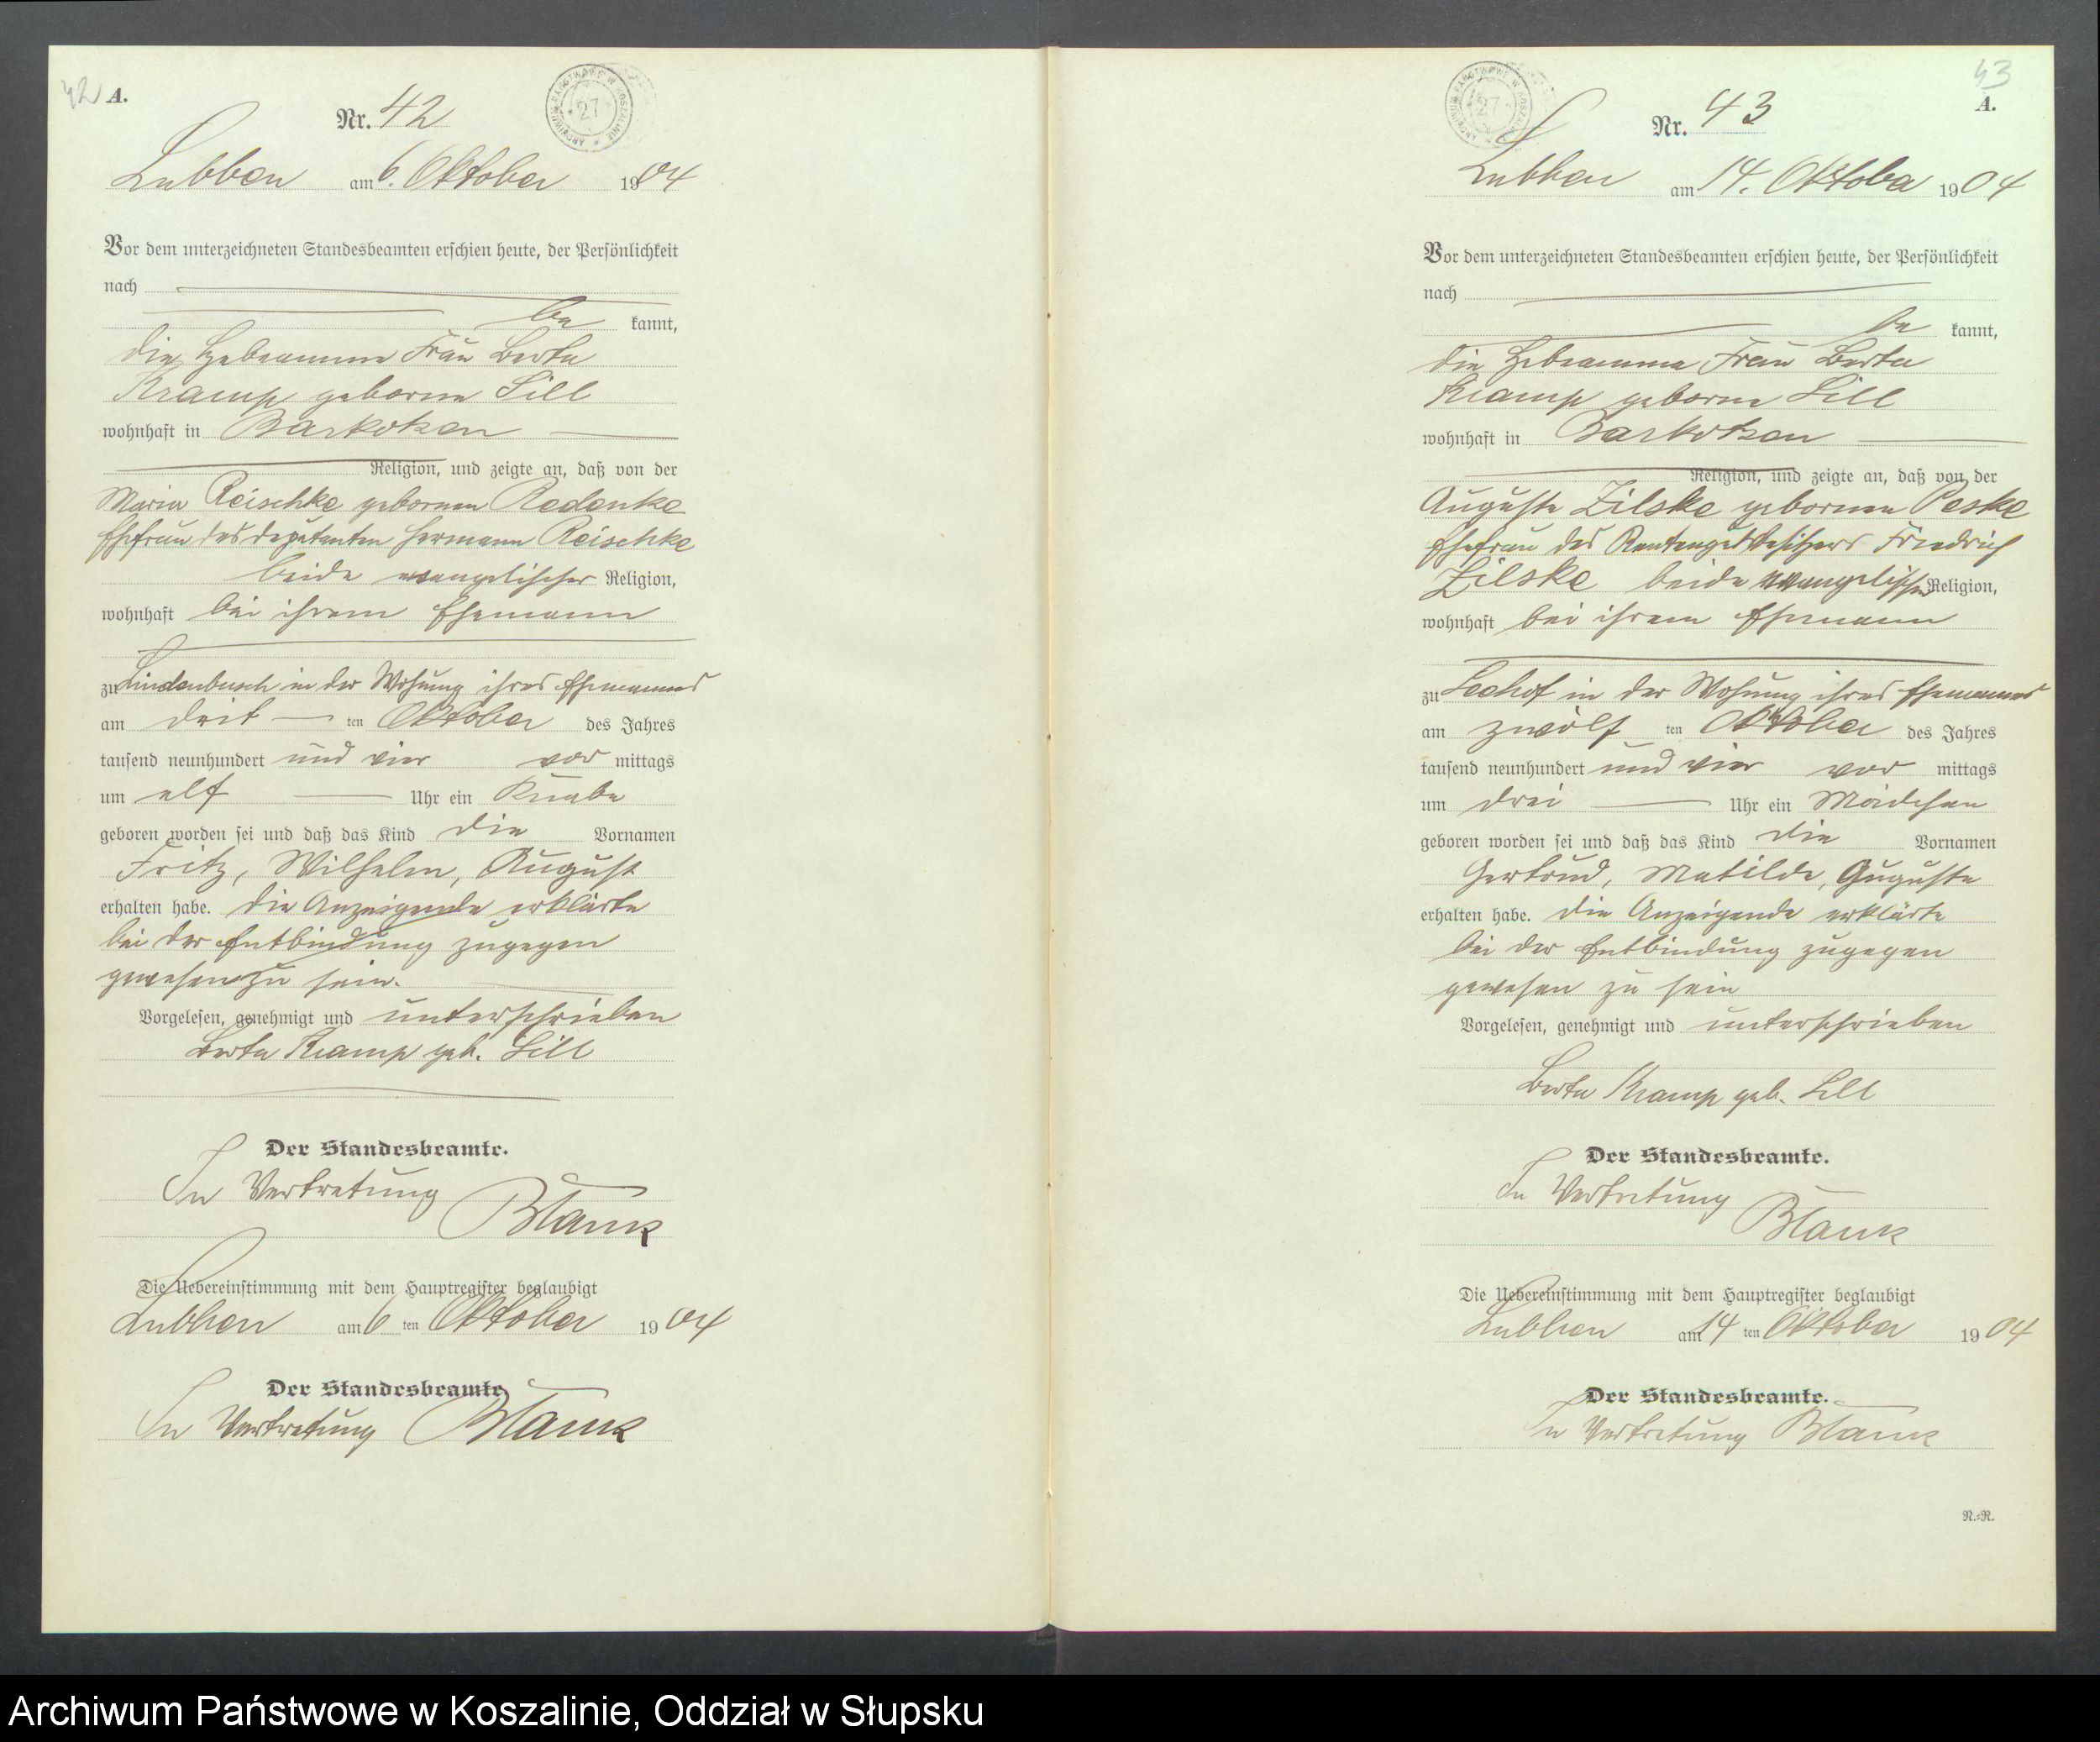 42 A.
Nr. 42
ARCHIWUM PAŃSTWOWE W KOSZALINIE
27
Lubben am 6. Oktober 1904
Vor dem unterzeichneten Standesbeamten erschien heute, der Persönlichkeit
nach
be kannt,
die Hebeamme Frau Berta
Kramp geborne Lill
wohnhaft in Barkotzen
Religion, und zeigte an, daß von der
Maria Reischke gebornen Radanke
Ehefrau des Deputanten Hermann Reischke
beide evangelischer Religion,
wohnhaft bei ihrem Ehemann
zu Lindenbusch in der Wohnung ihres Ehemannes
am drit ten Oktober des Jahres
tausend neunhundert und vier vor mittags
um elf Uhr ein Knabe
geboren worden sei und daß das Kind die Vornamen
Fritz, Wilhelm, August
erhalten habe. Die Anzeigende erklärte
bei der Entbindung zugegen
gewesen zu sein.
Vorgelesen, genehmigt und unterschrieben
Berta Kramp geb. Lill
Der Standesbeamte.
In Vertretung
Blank
Die Uebereinstimmung mit dem Hauptregister beglaubigt
Lubben am 6 ten Oktober 1904
Der Standesbeamte
In Vertretung Blank
43
A.
Nr. 43
ARCHIWUM PAŃSTWOWE W KOSZALINIE
27
Lubben am 14. Oktober 1904
Vor dem unterzeichneten Standesbeamten erschien heute, der Persönlichkeit
nach
be kannt,
die Hebeamme Frau Berta
Kramp geborne Lill
wohnhaft in Barkotzen
Religion, und zeigte an, daß von der
Auguste Zilske gebornen Peske
Ehefrau des Rentengutsbesitzers Friedrich
Zilske beide evangelischer Religion,
wohnhaft bei ihrem Ehemann
zu Seehof in der Wohnung ihres Ehemannes
am zwölf ten Oktober des Jahres
tausend neunhundert und vier vor mittags
um drei Uhr ein Mädchen
geboren worden sei und daß das Kind die Vornamen
Gertrud, Matilde, Auguste
erhalten habe. Die Anzeigende erklärte
bei der Entbindung zugegen
gewesen zu sein
Vorgelesen, genehmigt und unterschrieben
Berta Kramp geb. Lill
Der Standesbeamte.
In Vertretung
Blank
Die Uebereinstimmung mit dem Hauptregister beglaubigt
Lubben am 14 ten Oktober 1904
Der Standesbeamte.
In Vertretung Blank
N.-R.
Archiwum Państwowe w Koszalinie, Oddział w Słupsku